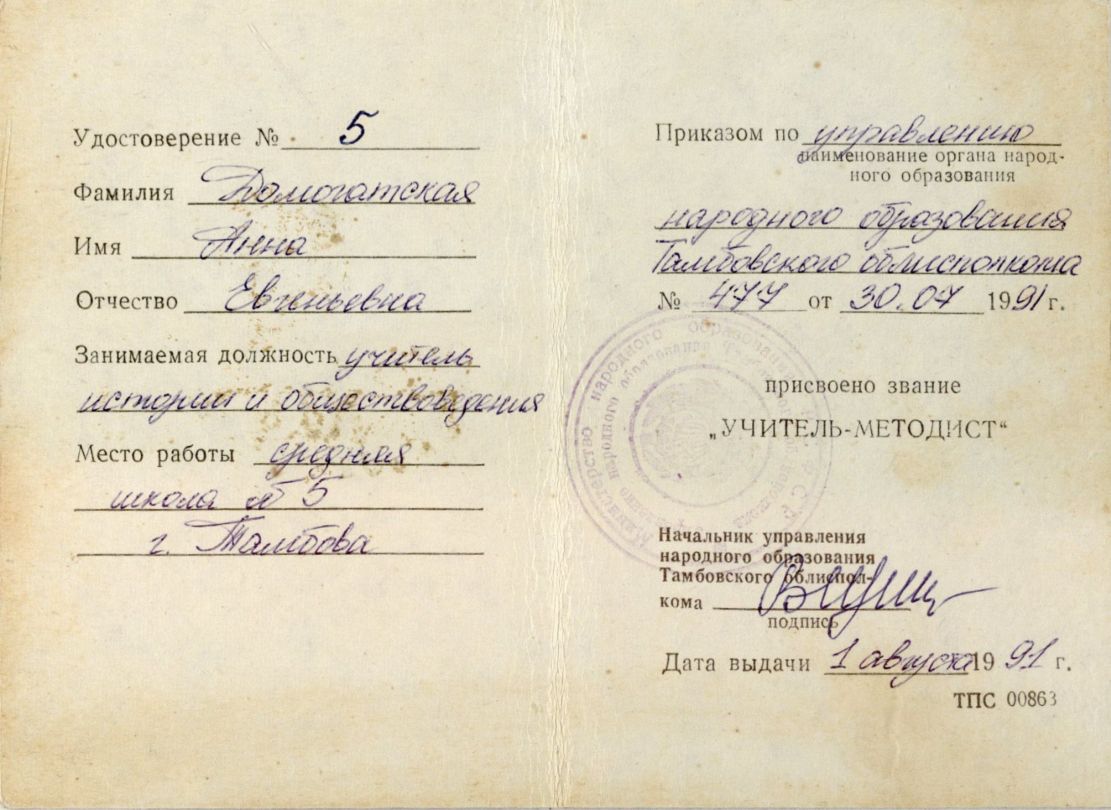 Удостоверение № 5
Фамилия Домогатская
Имя Анна
Отчество Евгеньевна
Занимаемая должность учитель
истории и обществоведения
Место работы средняя
школа № 5
г. Тамбова
Приказом по управлению
наименование органа народ-
ного образования
народного образования
Тамбовского облисполкома
№ 477 от 30.07 1991 г.
присвоено звание
„УЧИТЕЛЬ-МЕТОДИСТ“
Министерство народного образования РСФСР
Начальник управления
народного образования
Тамбовского облиспол-
кома
подпись
Дата выдачи 1 августа 1991 г.
ТПС 00863